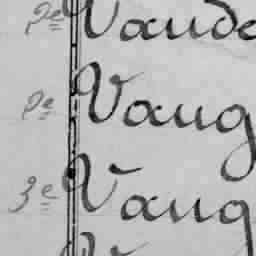 2e Vande
2e Vaug
3e Vaug